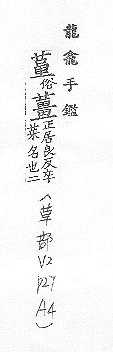 龍龕手鑑
俗薑正居良反辛
菜名也二
(草部 V2 P27 A4)